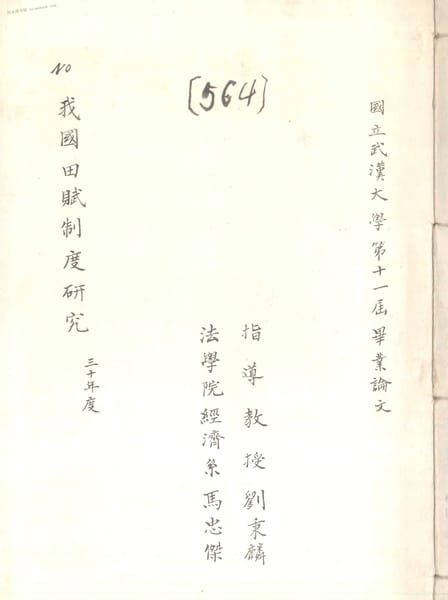 國立武漢大學第十一屆畢業論文
指導教授劉秉麟
法學院經濟系馬忠傑
[564]
No
我國田賦制度研究
三十年度